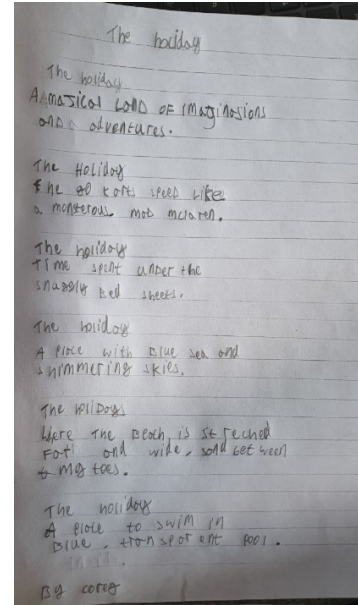 The holiday
The holiday
A magical Land OF imaginasions
and adventures.
The Holiday
the karts speed Like
a monsterous mob mclaren.
The holiday
Time spent under the
snazzly Bed sheets.
The holiday
A place with Blue sea and
shimmering skies.
The holidays
Where The Beach is streched
Far and wide, sand between
my toes.
The holiday
A place to swim in
Blue, transparent pool.
By corey